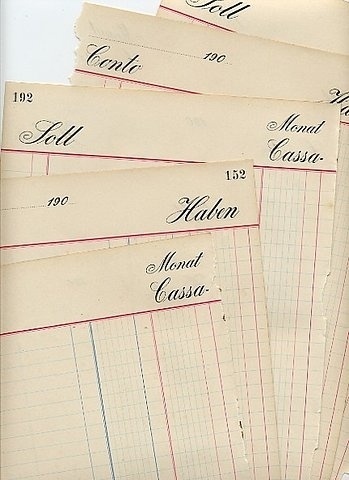 Soll
Conto 190
192
Soll
Monat
Cassa-
152
190
Haben
Monat
Cassa-